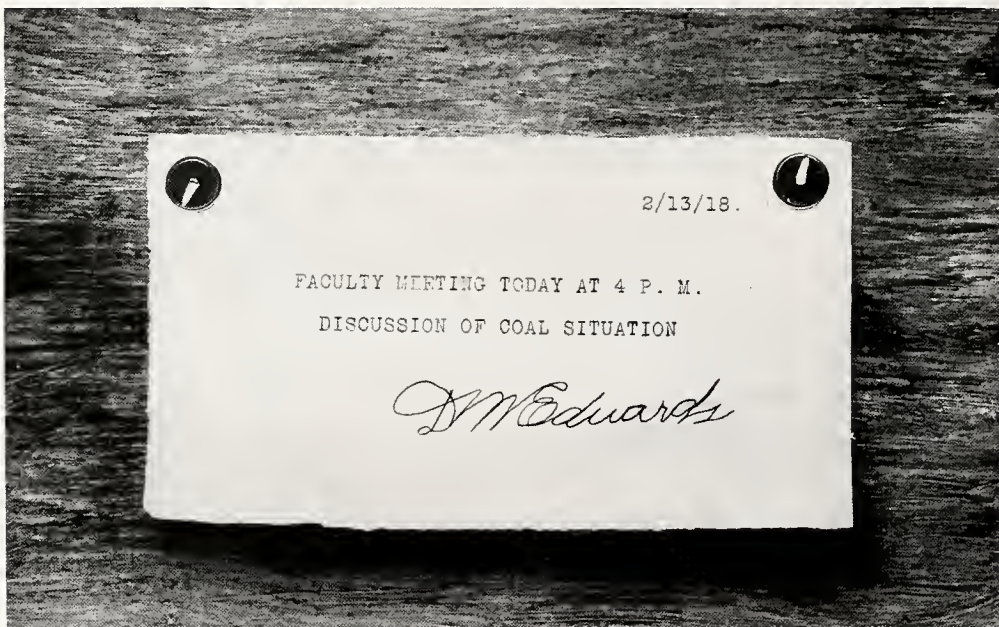 2/13/18.
FACULTY MEETING TODAY AT 4 P. M.
DISCUSSION OF COAL SITUATION
DMEdwards